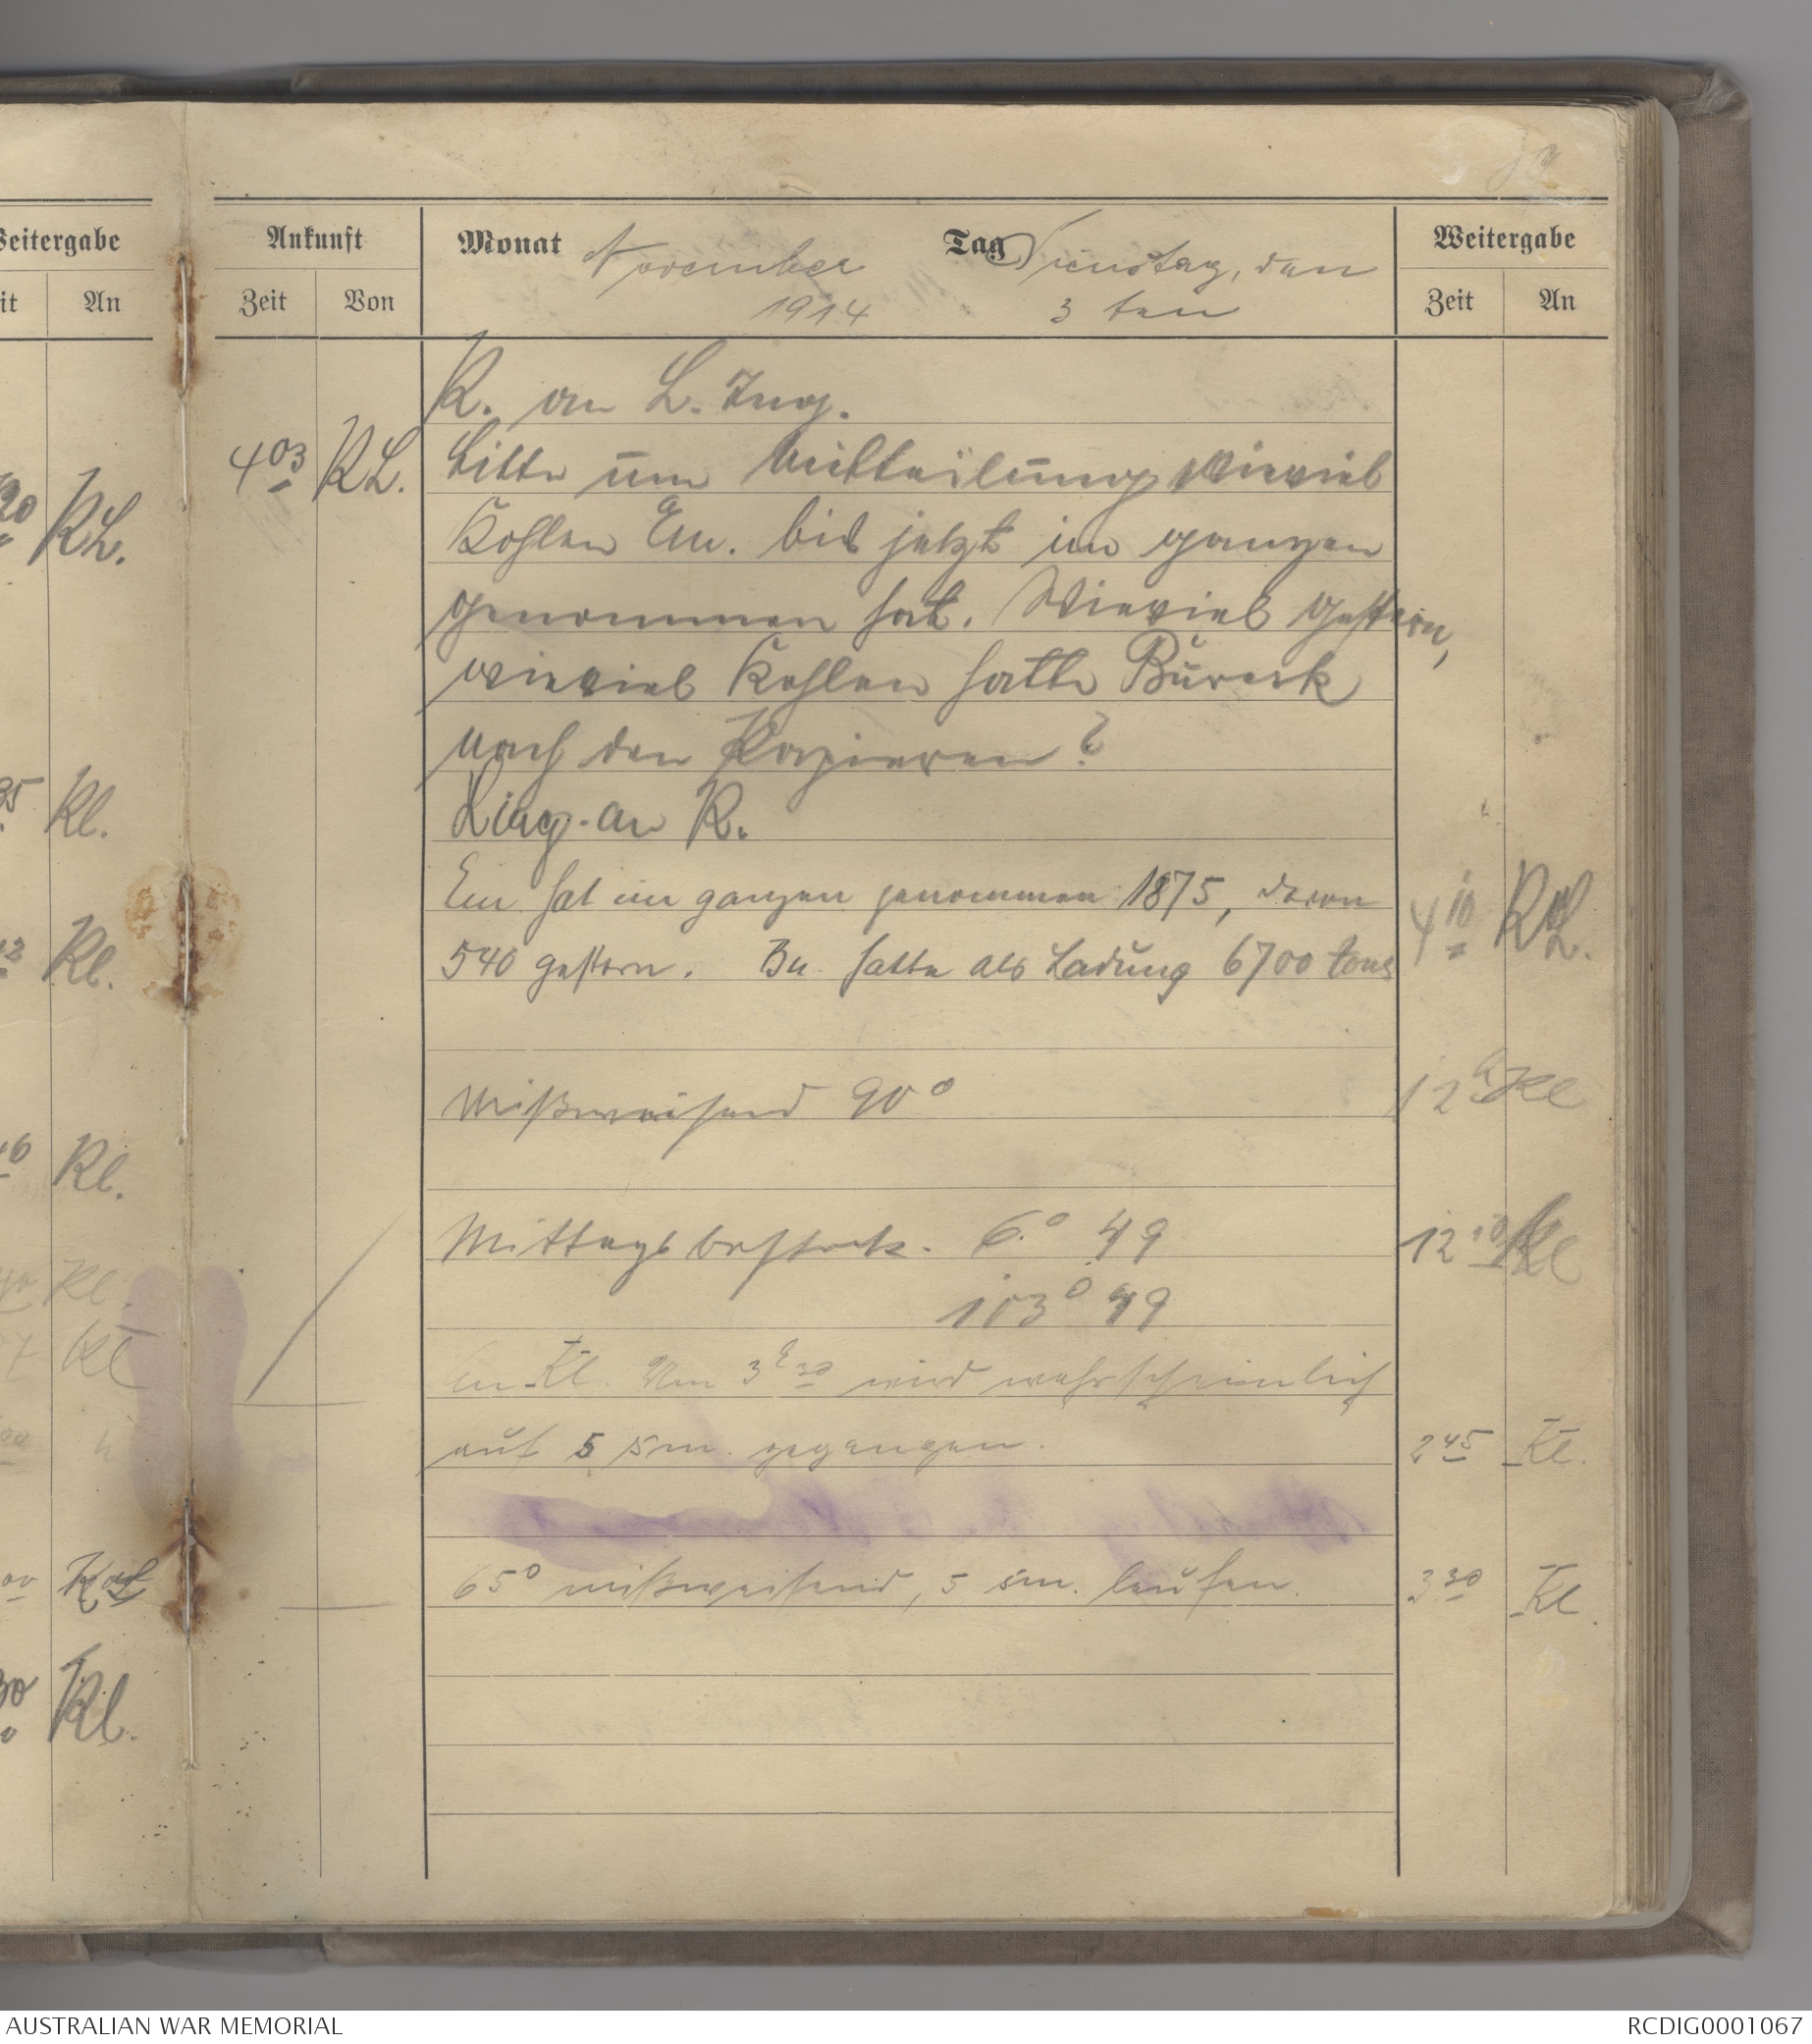 Weitergabe
it
An
20
RL.
35
Kl.
Kl.
Kl.
Kl.
Kl
Kl.
Ankunft
Zeit
Von
Monat November
1914
Tag Dienstag, den
3 ten
Weitergabe
Zeit
An
K. an L. Ing.
4 03 RL. bitte um Mitteilung wieviel
Kohlen Em. bis jetzt im ganzen
genommen hat. Wieviel gestern,
wieviel Kohlen hatte Buresk
nach den Papieren?
L Ing. an K.
Em hat im ganzen genommen 1875, davon
540 gestern. Bu. hatte als Ladung 6700 tons
4 10 RL.
Mißweisend 90° 12 Kl
Mittagsbesteck. 6° 49 12 10 Kl
103° 49
Em Kl. Um 3 30 wird wahrscheinlich
auf 5 sm. gegangen. 2 45 Kl.
65° mißweisend, 5 sm. laufen. 3 30 Kl.
AUSTRALIAN WAR MEMORIAL
RCDIG0001067